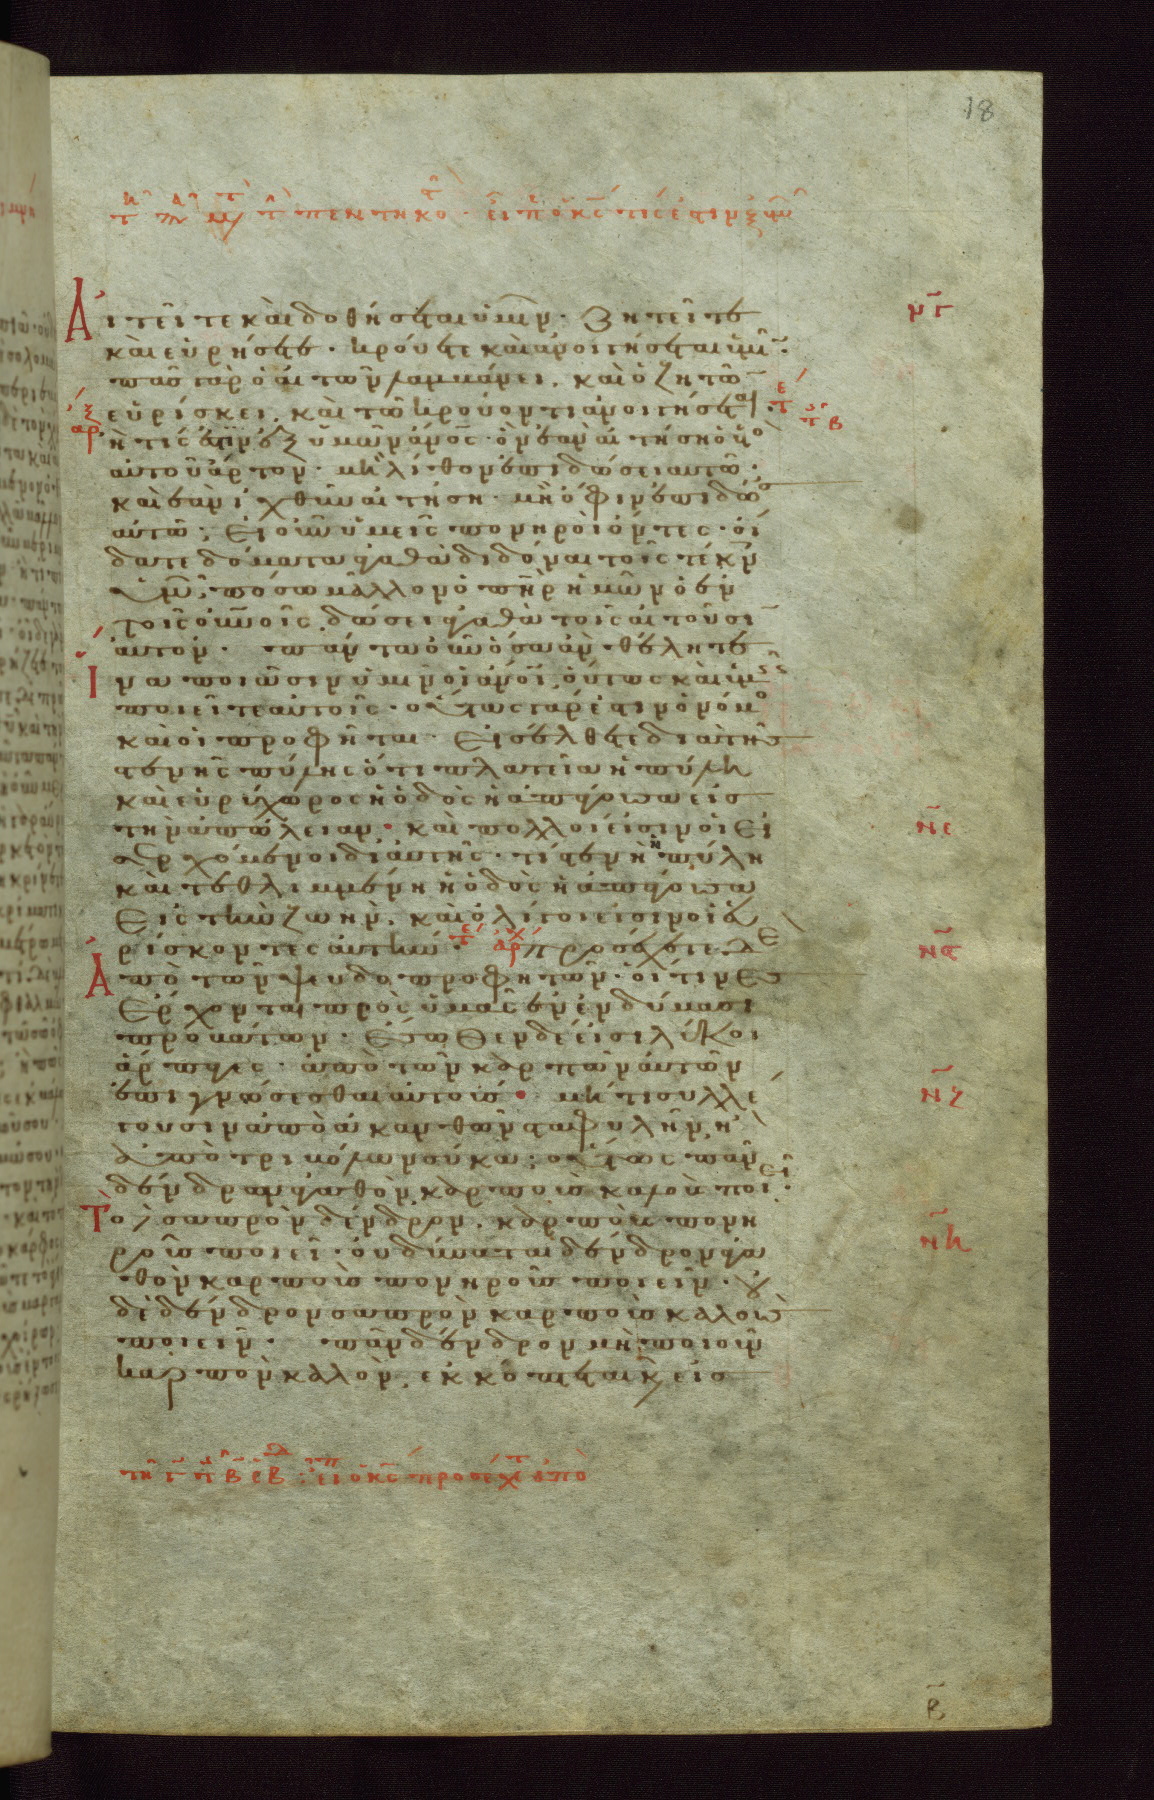 18
Αἰτεῖτε καὶ δοθήσεται ὑμῖν · Ζητεῖτε
καὶ εὑρήσετε · κρούετε καὶ ἀνοιγήσεται ὑμῖ ·
πᾶς γὰρ ὁ αἰτῶν λαμβάνει · καὶ ὁ ζητῶ
εὑρίσκει · καὶ τῶ κρούοντι ἀνοιγήσεται ·
ἢ τίς ἐστιν ἐξ ὑμῶν ἄνος · ὃν ἐὰν αἰτήση ὁ υἱὸ
αὐτοῦ ἄρτον · μὴ λίθον ἐπιδώσει αὐτῶ ·
καὶ ἐὰν ἰχθὺν αἰτήση · μὴ ὄφιν ἐπιδώσ
αὐτῶ ; Εἰ οὖν ὑμεῖς πονηροὶ ὄντες · οἴ
δατε δόματα ἀγαθὰ διδόναι τοῖς τέκν
ὑμῶ · πόσω μᾶλλον ὁ πηρ ἡμῶν ὁ ἐν
τοῖς οὐνοῖς δώσει ἀγαθὰ τοῖς αἰτοῦσι
αὐτόν · πάντα οὖν ὅσα ἂν θέλητε
ἵνα ποιῶσιν ὑμῖν οἱ ἄνοι οὕτως καὶ ὑμ
ποιεῖτε αὐτοῖς · οὕτως γάρ ἐστιν ὁ νόμο
καὶ οἱ προφῆται · Εἰσέλθετε διὰ τῆς
στενῆς πύλης ὅτι πλατεῖα ἡ πύλη
καὶ εὐρύχωρος ἡ ὁδὸς ἡ ἀπάγουσα εἰς
τὴν ἀπώλειαν · καὶ πολλοί εἰσιν οἱ εἰ
σερχόμενοι δι αὐτῆς · τί στενὴ ἡ πύλη
καὶ τεθλιμμένη ἡ ὁδὸς ἡ ἀπάγουσα
Εἰς τὴν ζωήν · καὶ ὀλίγοι εἰσιν οἱ εὑ
ρίσκοντες αὐτήν · προσέχετε δὲ
Ἀπὸ τῶν ψευδοπροφητῶν · οἵτινες
Ἔρχονται πρὸς ὑμᾶς ἐν ἐνδύμασι
προβάτων · Ἔσωθεν δέ εἰσι λύκοι
ἅρπαγες · ἀπὸ τῶν καρπῶν αὐτῶν
ἐπιγνώσεσθαι αὐτούς · μήτι συλλέ
γουσιν ἀπὸ ἀκανθῶν σταφυλὴν ἢ
ἀπὸ τριβόλων σύκα ; οὕτως πᾶν
δένδρον ἀγαθὸν καρποὺς καλοὺς ποιεῖ ·
Τὸ δὲ σαπρὸν δένδρον · καρποὺς πονη
ροὺς ποιεῖ · οὐ δύναται δένδρον ἀγα
θὸν καρποὺς πονηροὺς ποιεῖν · οὐ
δὲ δένδρον σαπρὸν καρποὺς καλοὺς
ποιεῖν · πᾶν δένδρον μὴ ποιοῦν
καρπὸν καλὸν ἐκκόπτεται κ εἰς